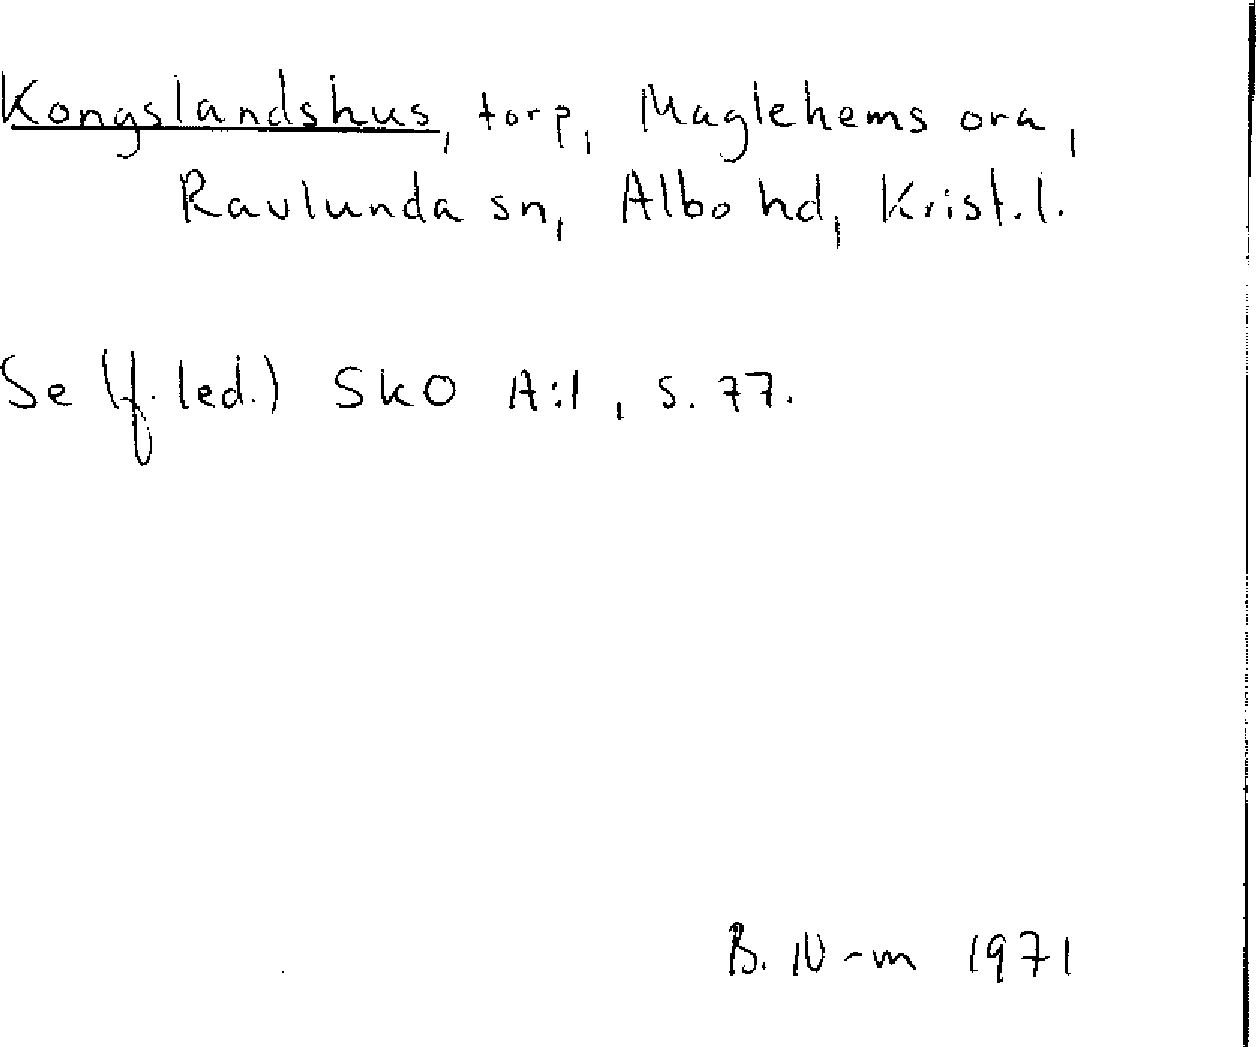 Kongslandshus, torp, Maglehems ora,
Ravlunda sn, Albo hd, Krist. l.
Se (f. led.) SkO A:1, s. 77.
B. N-m 1971